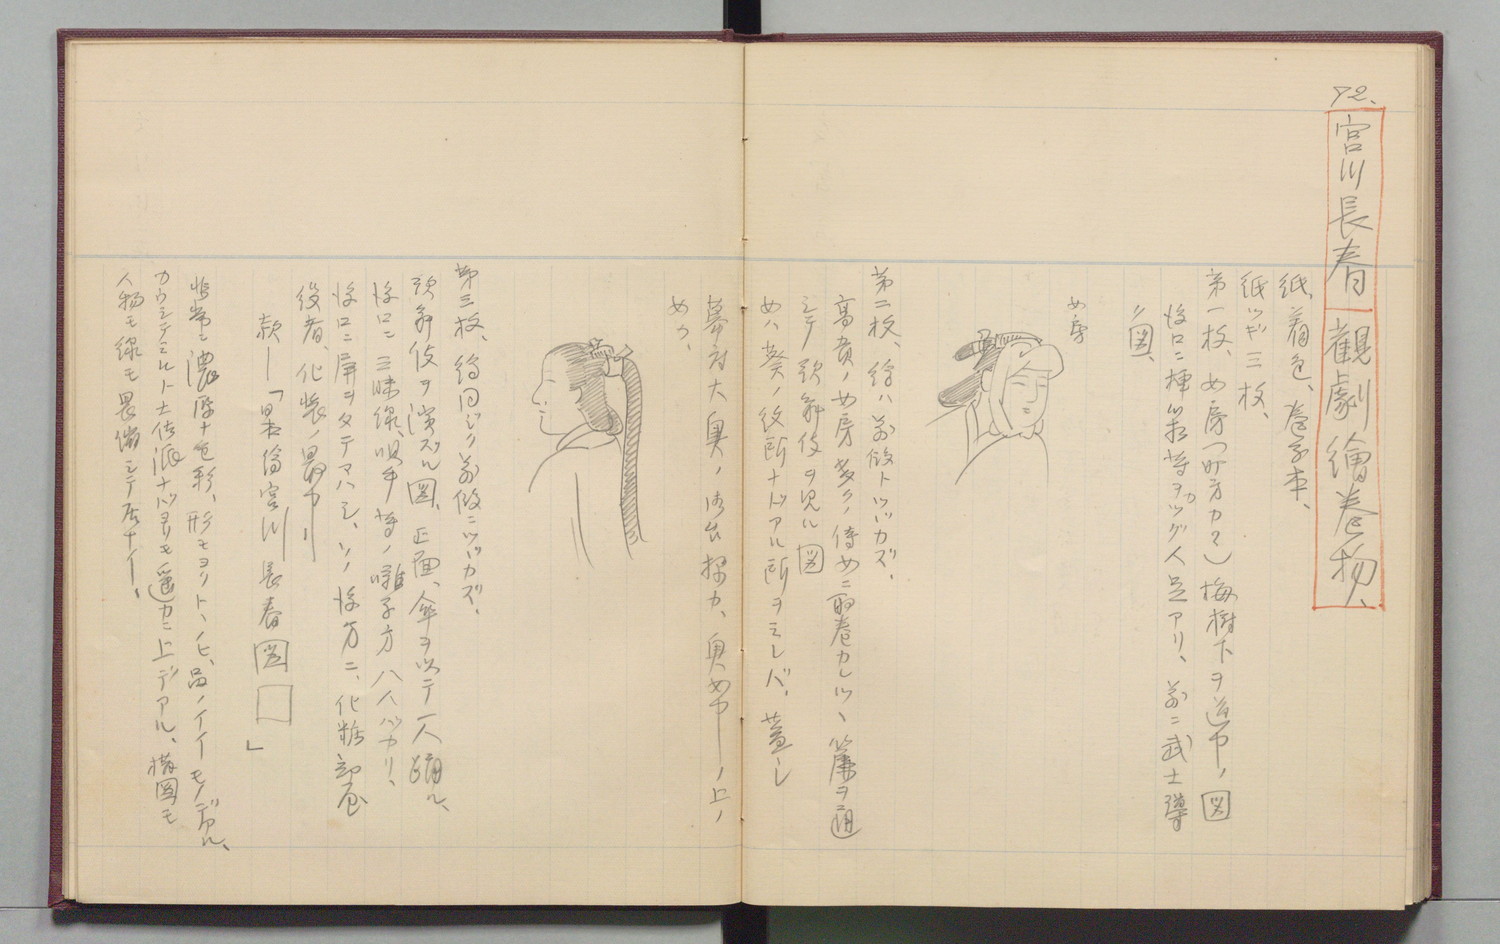 72.
宮川長春 觀劇繪巻物、
紙、着色、巻子本、
紙ツギ三枚、
第一枚、め房(町方カ?)梅樹下ヲ道中ノ図
後ロニ挿箱等ヲカツグ人足アリ、前ニ武士導
ノ図、
め房
第二枚、繪ハ前段トツヾカズ、
高貴ノ女房多ク侍めニ取巻カレツヽ簾ヲ通
シテ歌舞伎ヲ見ル図
めハ葵ノ紋所ナドアル所ヲミレバ、蓋シ
幕府大奥ノ御台様カ、奥め中ノ上ノ
めカ、
第三枚、繪同ジク前後ニツヾカズ、
歌舞伎ヲ演ズル図、正面、傘ヲ以テ一人踊ル、
後ロニ三味線、唄手等ノ囃子方八人バカリ、
後ロニ屏ヲタテマハシ、ソノ後方ニ、化粧部屋
役者、化装ノ最中
款―「日本繪宮川長春図□」
非常ニ濃厚ナ色彩、形モヨクトヽノヒ、品ノイイモノデアル、
カウシテミルト土佐派ナドヨリモ遥カニ上デアル、構図モ
人物モ線モ畏縮シテ居ナイ、